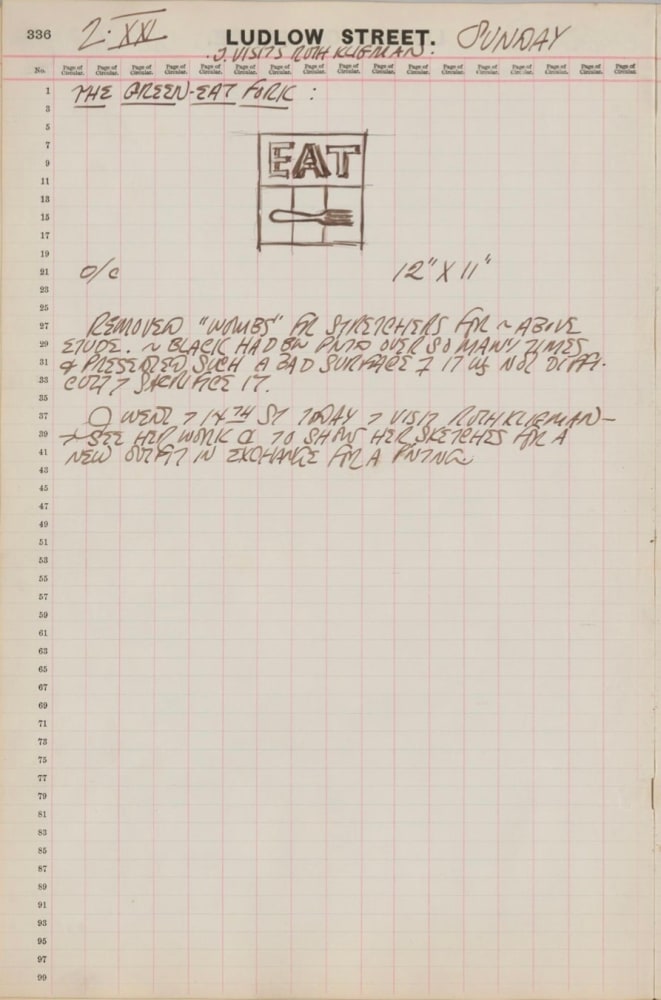 336
2·XXI
LUDLOW STREET.
SUNDAY
J. VISITS RUTH KLIGMAN:
No. Page of Circular. Page of Circular. Page of Circular. Page of Circular. Page of Circular. Page of Circular. Page of Circular. Page of Circular. Page of Circular. Page of Circular. Page of Circular. Page of Circular. Page of Circular. Page of Circular. Page of Circular. Page of Circular. Page of Circular.
1 THE GREEN-EAT FORK :
3
5
7
EAT
9
11
13
15
17
19
21 o/c 12" X 11"
23
25
27 REMOVED "WOMBS" FR STRETCHERS FOR ~ ABOVE
29 ETUDE. ~ BLACK HAD BN PNTD OVER SO MANY TIMES
31 & PRESENTED SUCH A BAD SURFACE IT WS NOT DIFFI-
33 CULT SACRIFICE IT.
35
37 WENT 14TH ST TODAY VISIT RUTH KLIGMAN-
39 SEE HER WORK TO SHOW HER SKETCHES FOR A
41 NEW OUTFIT IN EXCHANGE FOR A PNTNG.
43
45
47
49
51
53
55
57
59
61
63
65
67
69
71
73
75
77
79
81
83
85
87
89
91
93
95
97
99